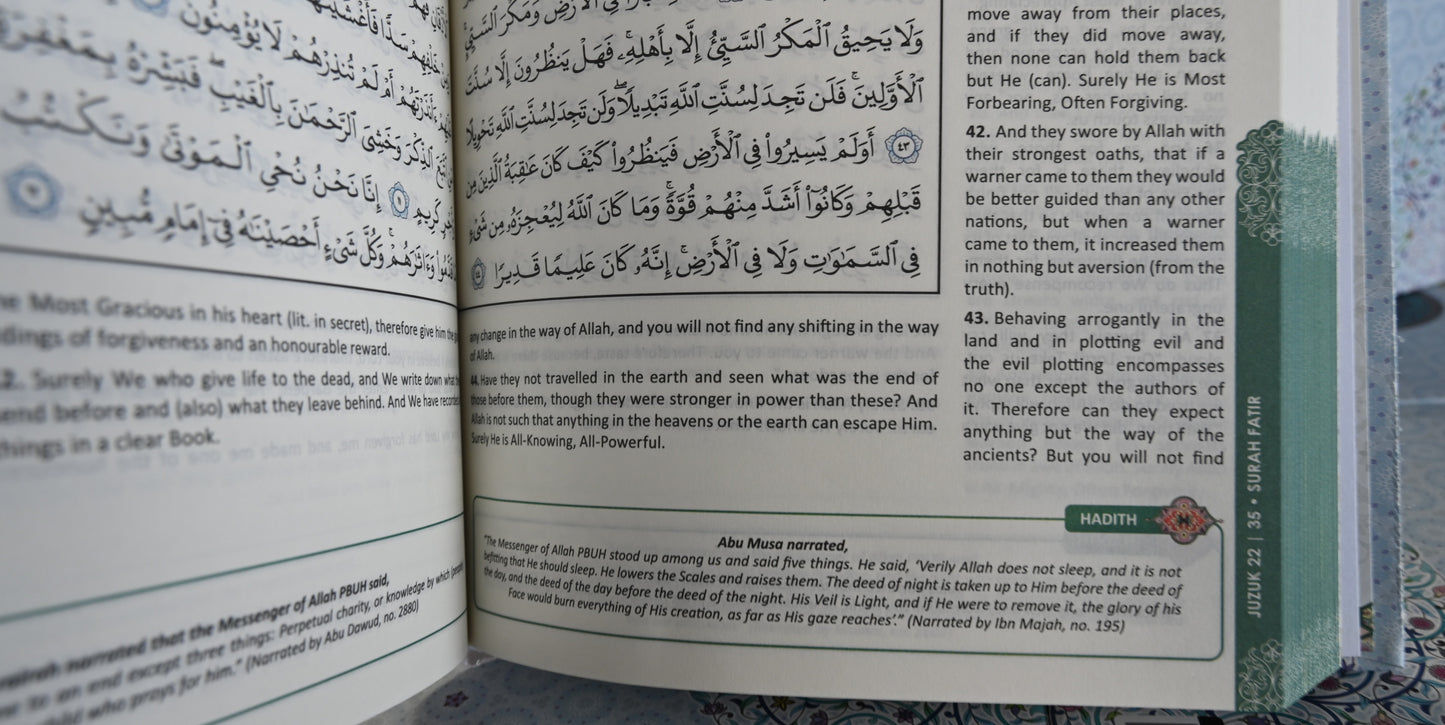 خَلْفِهِمْ سَدًّا
لَا يُؤْمِنُونَ
ءَأَنذَرْتَهُمْ أَمْ لَمْ تُنذِرْهُمْ
ٱلذِّكْرَ وَخَشِىَ ٱلرَّحْمَـٰنَ بِٱلْغَيْبِ ۖ فَبَشِّرْهُ بِمَغْفِرَةٍ
كَرِيمٍ ١١ إِنَّا نَحْنُ نُحْىِ ٱلْمَوْتَىٰ وَنَكْتُبُ
وَءَاثَـٰرَهُمْ ۚ وَكُلَّ شَىْءٍ أَحْصَيْنَـٰهُ فِىٓ إِمَامٍ مُّبِينٍ
Most Gracious in his heart (lit. in secret), therefore give him
of forgiveness and an honourable reward.
Surely We who give life to the dead, and We write down what
before and (also) what they leave behind. And We have
things in a clear Book.
narrated that the Messenger of Allah PBUH said,
to an end except three things: Perpetual charity, or knowledge by which
who prays for him.” (Narrated by Abu Dawud, no. 2880)
ٱلْأَرْضِ وَمَكْرَ ٱلسَّيِّئِ
وَلَا يَحِيقُ ٱلْمَكْرُ ٱلسَّيِّئُ إِلَّا بِأَهْلِهِۦ ۚ فَهَلْ يَنظُرُونَ إِلَّا سُنَّتَ
ٱلْأَوَّلِينَ ۚ فَلَن تَجِدَ لِسُنَّتِ ٱللَّهِ تَبْدِيلًا ۖ وَلَن تَجِدَ لِسُنَّتِ ٱللَّهِ تَحْوِيلًا
٤٣ أَوَلَمْ يَسِيرُوا۟ فِى ٱلْأَرْضِ فَيَنظُرُوا۟ كَيْفَ كَانَ عَـٰقِبَةُ ٱلَّذِينَ مِن
قَبْلِهِمْ وَكَانُوٓا۟ أَشَدَّ مِنْهُمْ قُوَّةً ۚ وَمَا كَانَ ٱللَّهُ لِيُعْجِزَهُۥ مِن شَىْءٍ
فِى ٱلسَّمَـٰوَٰتِ وَلَا فِى ٱلْأَرْضِ ۚ إِنَّهُۥ كَانَ عَلِيمًا قَدِيرًا ٤٤
move away from their places,
and if they did move away,
then none can hold them back
but He (can). Surely He is Most
Forbearing, Often Forgiving.
42. And they swore by Allah with
their strongest oaths, that if a
warner came to them they would
be better guided than any other
nations, but when a warner
came to them, it increased them
in nothing but aversion (from the
truth).
43. Behaving arrogantly in the
land and in plotting evil and
the evil plotting encompasses
no one except the authors of
it. Therefore can they expect
anything but the way of the
ancients? But you will not find
any change in the way of Allah, and you will not find any shifting in the way
of Allah.
44. Have they not travelled in the earth and seen what was the end of
those before them, though they were stronger in power than these? And
Allah is not such that anything in the heavens or the earth can escape Him.
Surely He is All-Knowing, All-Powerful.
HADITH
Abu Musa narrated,
“The Messenger of Allah PBUH stood up among us and said five things. He said, ‘Verily Allah does not sleep, and it is not
befitting that He should sleep. He lowers the Scales and raises them. The deed of night is taken up to Him before the deed of
the day, and the deed of the day before the deed of the night. His Veil is Light, and if He were to remove it, the glory of his
Face would burn everything of His creation, as far as His gaze reaches’.” (Narrated by Ibn Majah, no. 195)
JUZUK 22 | 35 • SURAH FATIR